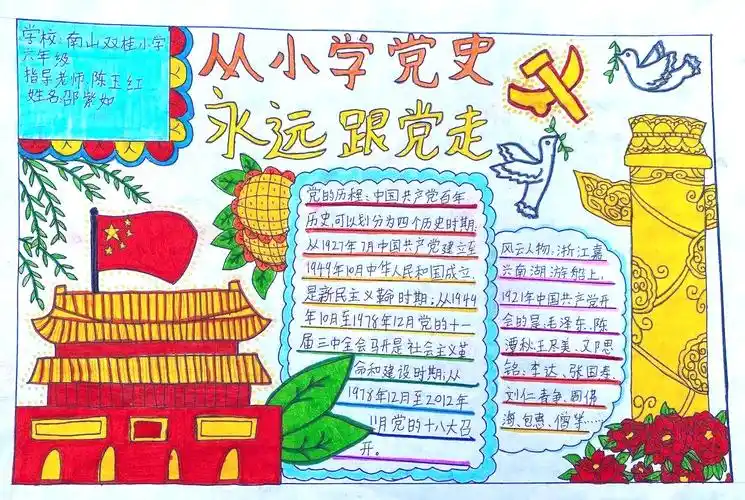 学校:南山双桂小学
六年级
指导老师:陈玉红
姓名:邵紫如
从小学党史
永远跟党走
党的历程:中国共产党百年
历史,可以划分为四个历史时期:
从1927年7月中国共产党建立至
1949年10月中华人民和国成立
是新民主义革命时期;从1949
年10月至1978年12月党的十一
届三中全会马开是社会主义革
命和建设时期;从
1978年12月至2012年
11月党的十八大召
开。
风云人物:浙江嘉
兴南湖游船上,
1921年中国共产党开
会的是:毛泽东、陈
潭秋、王尽美、邓恩
铭、李达、张国焘
刘仁静、周佛
海、包惠僧等……